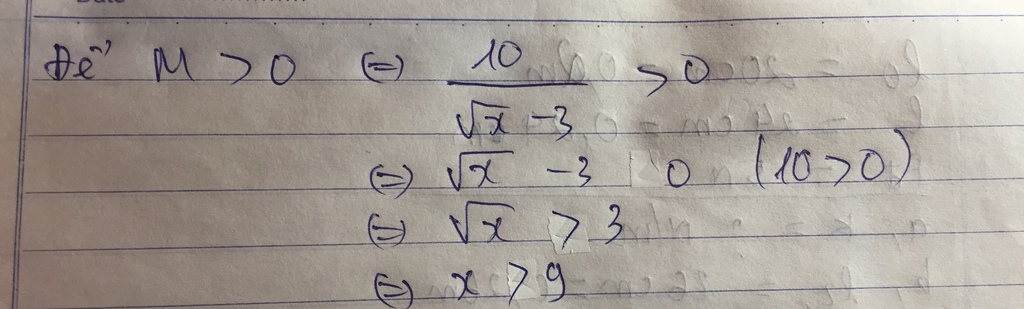 Để M > 0 ⇔ 10/(√x - 3) > 0
⇔ √x - 3 0 (10 > 0)
⇔ √x > 3
⇔ x > 9